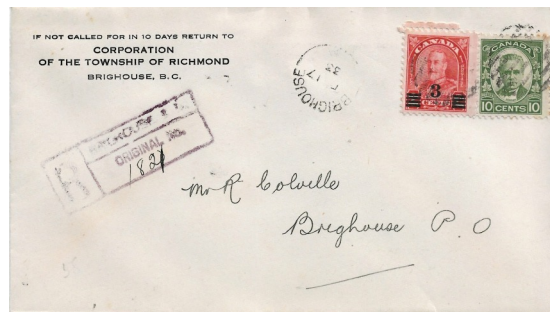 IF NOT CALLED FOR IN 10 DAYS RETURN TO
CORPORATION
OF THE TOWNSHIP OF RICHMOND
BRIGHOUSE, B.C.
BRIGHOUSE
17
CANADA
3
CANADA
10 CENTS 10
R
BRIGHOUSE, B.C.
ORIGINAL No.
1821
Mr R Colville
Brighouse P.O